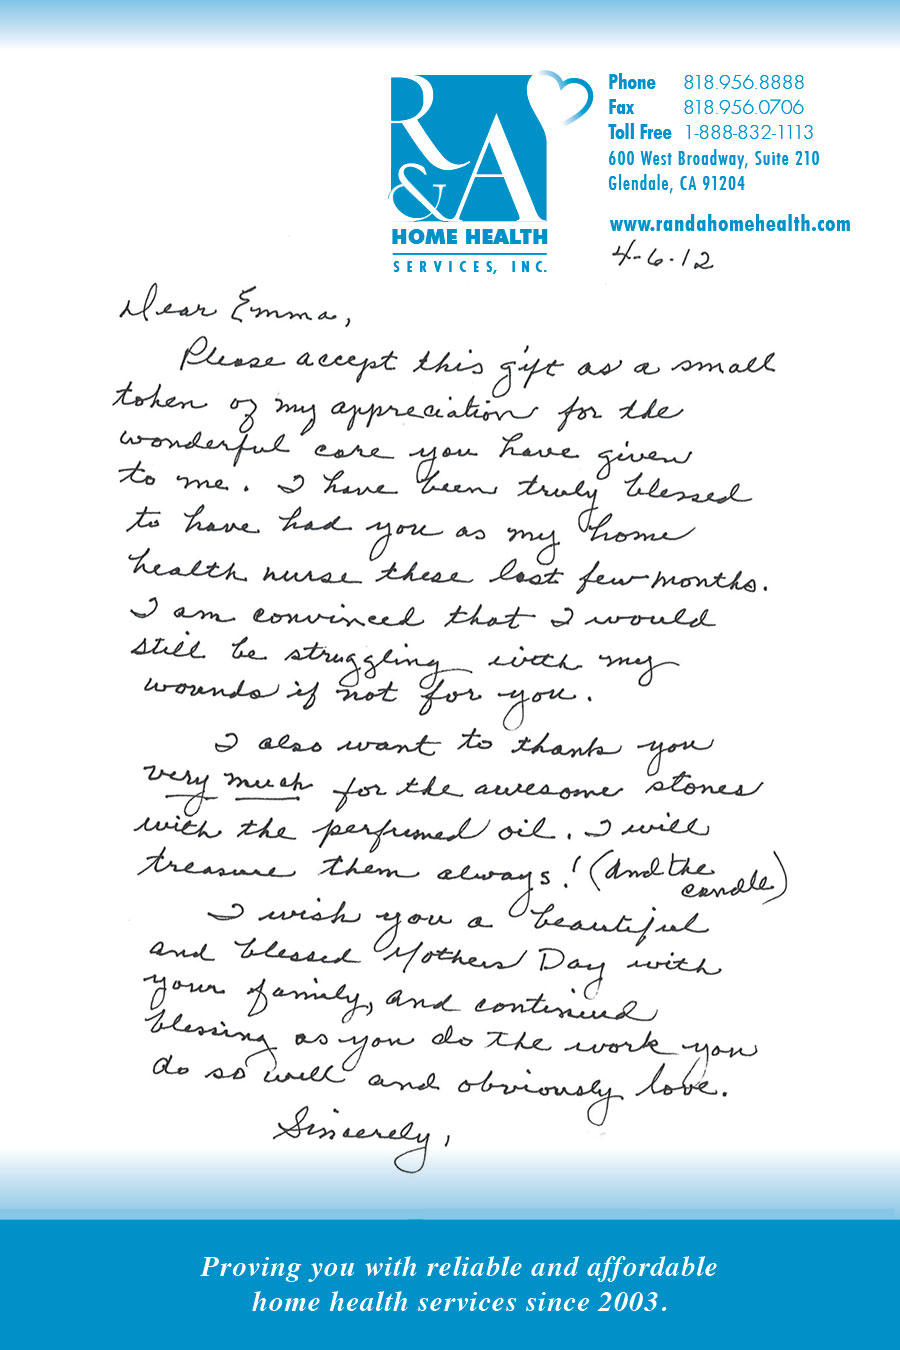 R&A
HOME HEALTH
SERVICES, INC.
Phone 818.956.8888
Fax 818.956.0706
Toll Free 1-888-832-1113
600 West Broadway, Suite 210
Glendale, CA 91204
www.randahomehealth.com
4-6-12
Dear Emma,
Please accept this gift as a small
token of my appreciation for the
wonderful care you have given
to me. I have been truly blessed
to have had you as my home
health nurse these last few months.
I am convinced that I would
still be struggling with my
wounds if not for you.
I also want to thank you
very much for the awesome stones
with the perfumed oil. I will
treasure them always! (And the
candle)
I wish you a beautiful
and blessed Mothers Day with
your family, and continued
blessing as you do the work you
do so well and obviously love.
Sincerely,
Proving you with reliable and affordable
home health services since 2003.